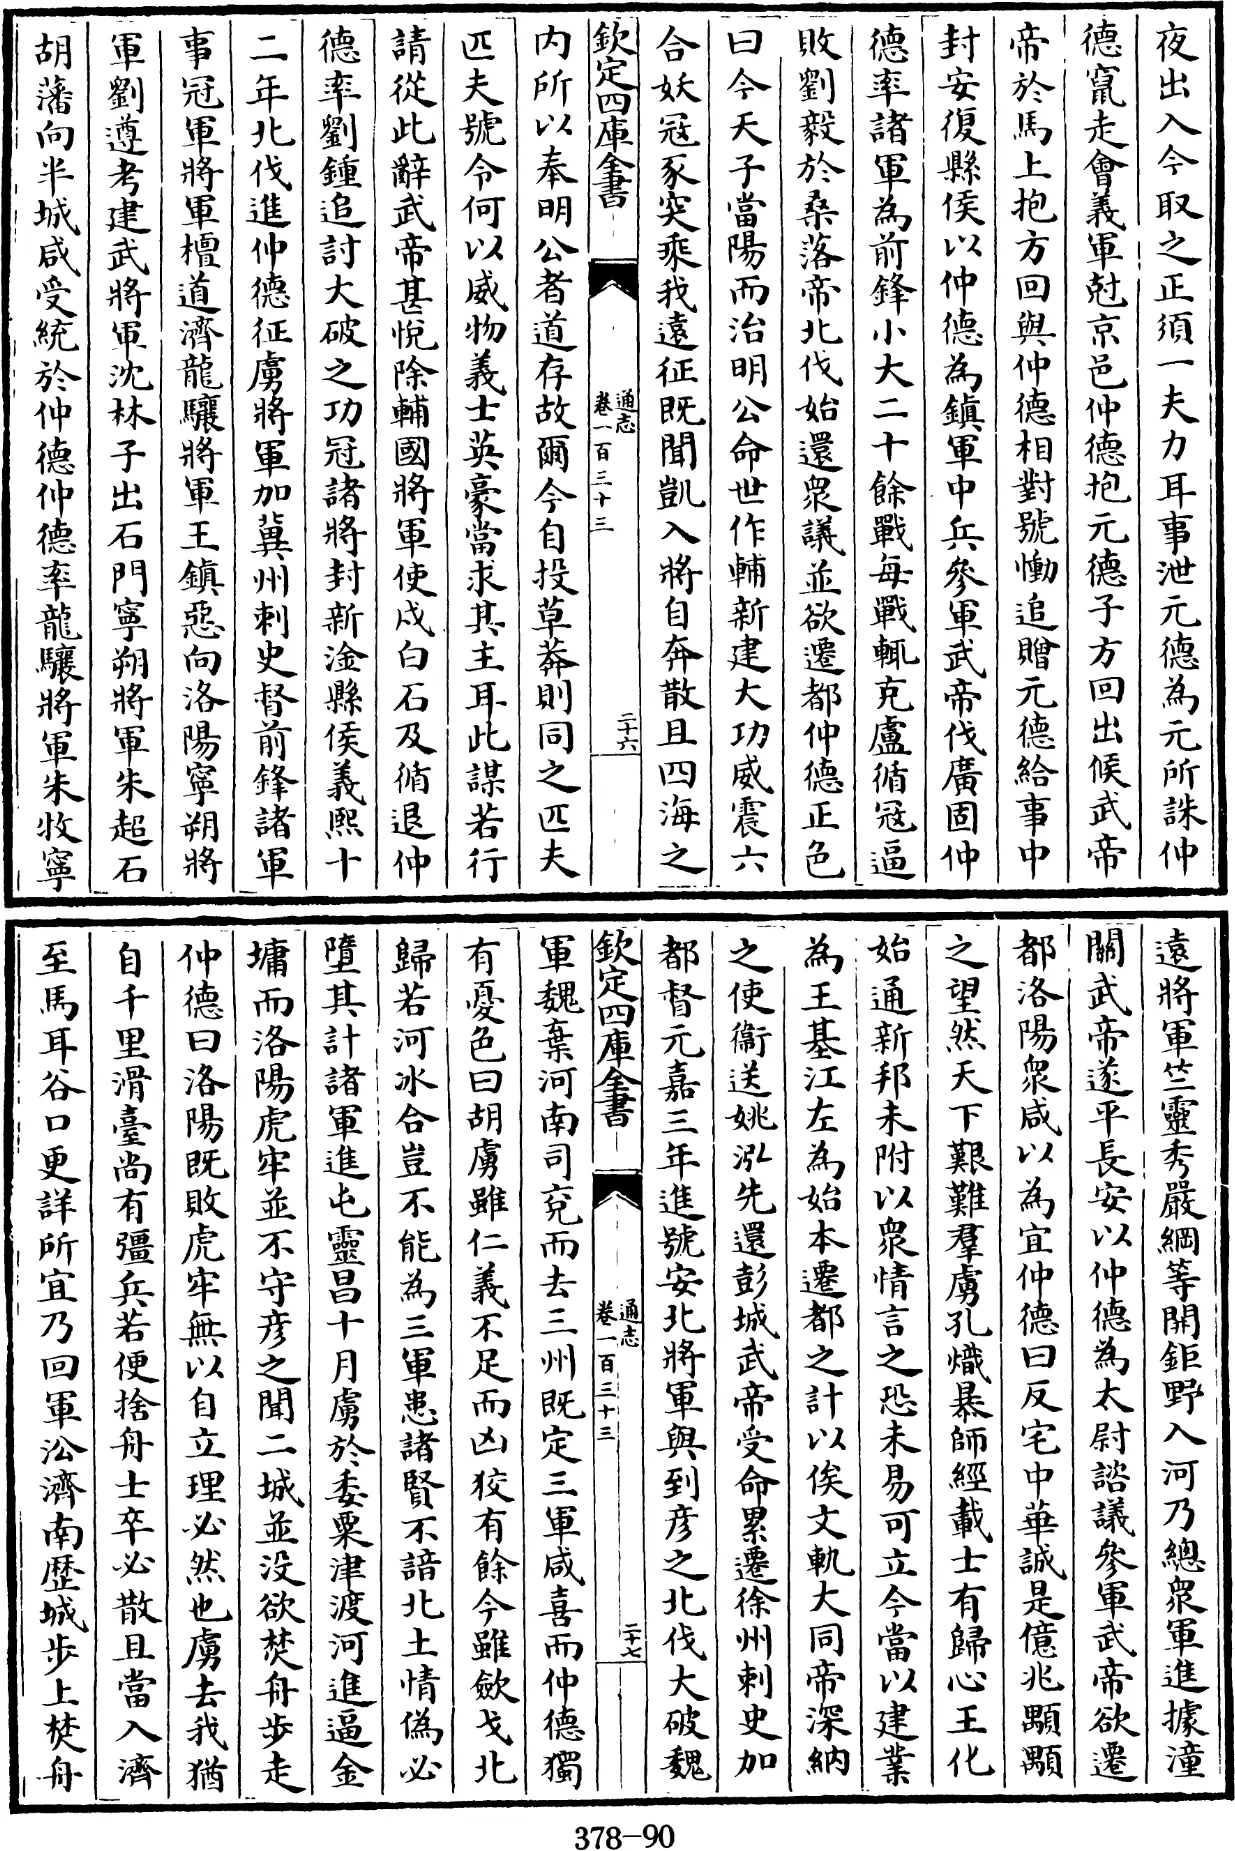 夜出入今取之正須一夫力耳事泄元德為元所誅仲
德竄走會義軍尅京邑仲德抱元德子方回出候武帝
帝於馬上抱方回與仲德相對號慟追贈元德給事中
封安復縣侯以仲德為鎮軍中兵參軍武帝伐廣固仲
德率諸軍為前鋒小大二十餘戰每戰輒克盧循冦逼
敗劉毅於桑落帝北伐始還衆議並欲遷都仲德正色
曰今天子當陽而治明公命世作輔新建大功威震六
合妖冦豕突乘我遠征既聞凱入將自奔散且四海之
欽定四庫全書
通志
卷一百三十三
二十六
内所以奉明公者道存故爾今自投草莽則同之匹夫
匹夫號令何以威物義士英豪當求其主耳此謀若行
請從此辭武帝甚悅除輔國將軍使戍白石及循退仲
德率劉鍾追討大破之功冠諸將封新淦縣侯義熙十
二年北伐進仲德征虜將軍加冀州刺史督前鋒諸軍
事冠軍將軍檀道濟龍驤將軍王鎮惡向洛陽寧朔將
軍劉遵考建武將軍沈林子出石門寧朔將軍朱超石
胡藩向半城咸受統於仲德仲德率龍驤將軍朱牧寧
遠將軍竺靈秀嚴綱等開鉅野入河乃總衆軍進據潼
關武帝遂平長安以仲德為太尉諮議參軍武帝欲遷
都洛陽衆咸以為宜仲德曰反宅中華誠是億兆顒顒
之望然天下艱難羣虜孔熾暴師經載士有歸心王化
始通新邦未附以衆情言之恐未易可立今當以建業
為王基江左為始本遷都之計以俟文軌大同帝深納
之使衞送姚泓先還彭城武帝受命累遷徐州刺史加
都督元嘉三年進號安北將軍與到彦之北伐大破魏
欽定四庫全書
通志
卷一百三十三
二十七
軍魏棄河南司兖而去三州既定三軍咸喜而仲德獨
有憂色曰胡虜雖仁義不足而凶狡有餘今雖斂戈北
歸若河冰合豈不能為三軍患諸賢不諳北土情偽必
墮其計諸軍進屯靈昌十月虜於委粟津渡河進逼金
墉而洛陽虎牢並不守彦之聞二城並没欲焚舟步走
仲德曰洛陽既敗虎牢無以自立理必然也虜去我猶
自千里滑臺尚有彊兵若便捨舟士卒必散且當入濟
至馬耳谷口更詳所宜乃回軍㳂濟南歴城步上焚舟
378-90